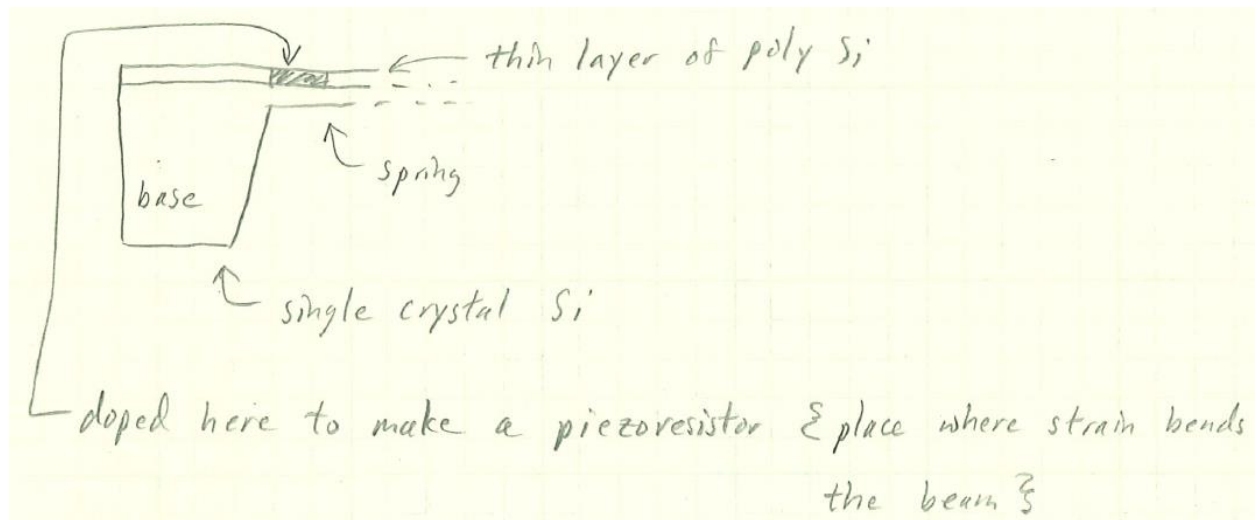 thin layer of poly Si
spring
base
single crystal Si
doped here to make a piezoresistor { place where strain bends
the beam }